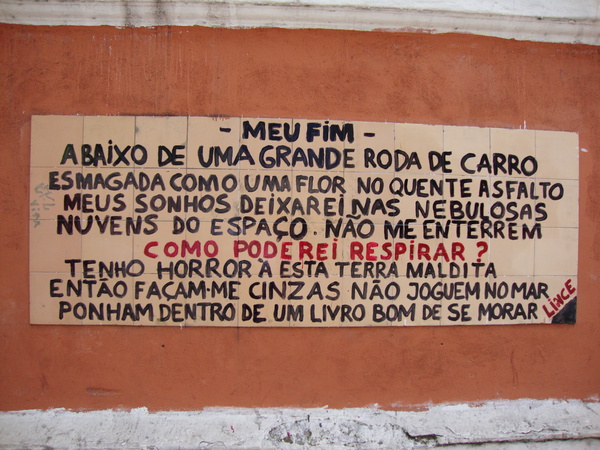 - MEU FIM -
ABAIXO DE UMA GRANDE RODA DE CARRO
ESMAGADA COMO UMA FLOR NO QUENTE ASFALTO
MEUS SONHOS DEIXAREI NAS NEBULOSAS
NUVENS DO ESPAÇO. NÃO ME ENTERREM
COMO PODEREI RESPIRAR?
TENHO HORROR À ESTA TERRA MALDITA
ENTÃO FAÇAM-ME CINZAS NÃO JOGUEM NO MAR
PONHAM DENTRO DE UM LIVRO BOM DE SE MORAR
LINCE